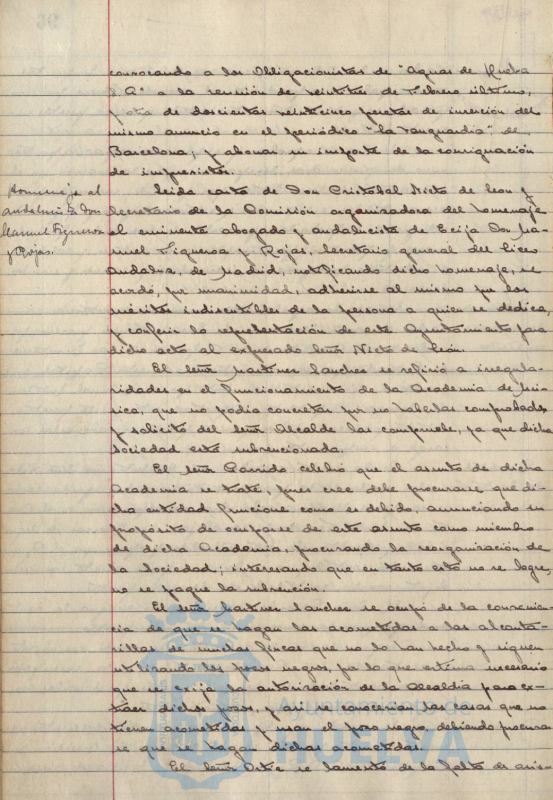 convocando a los Obligacionistas de "Aguas de Huelva
S.A" a la reunión de veintitres de Febrero último,
y otra de doscientas veinticinco pesetas de inserción del
mismo anuncio en el periódico "La Vanguardia" de
Barcelona; y abonar su importe de la consignación
de imprevistos.
Homenaje al
andalucista Don
Manuel Figueroa
y Rojas.
Leida carta de Don Cristobal Nieto de Leon y
Secretario de la Comisión organizadora del homenaje
al eminente abogado y andalucista de Ecija Don Ma-
nuel Figueroa y Rojas, Secretario general del Liceo
Andaluz, de Madrid, notificando dicho homenaje, se
acordó, por unanimidad, adherirse al mismo por los
méritos indiscutibles de la persona a quien se dedica,
y conferir la representación de este Ayuntamiento para
dicho acto al expresado Señor Nieto de León.
El Señor Martinez Sanchez se refirió a irregula-
ridades en el funcionamiento de la Academia de Mú-
sica, que no podia concretar por no haberlas comprobado,
y solicitó del Señor Alcalde las compruebe, ya que dicha
sociedad está subvencionada.
El Señor Garrido celebró que el asunto de dicha
Academia se trate, pues cree debe procurarse que di-
cha entidad funcione como es debido, anunciando su
propósito de ocuparse de este asunto como miembro
de dicha Academia, procurando la reorganización de
la Sociedad; interesando que en tanto esto no se logre,
no se pague la subvención.
El Señor Martinez Sanchez se ocupó de la convenien-
cia de que se hagan las acometidas a las alcanta-
rillas de muchas fincas que no lo han hecho y siguen
utilizando los pozos negros, por lo que estima necesario
que se exija la autorización de la Alcaldia para ex-
traer dichos pozos, y asi se conocerian las casas que no
tienen acometidas y usan el pozo negro, debiendo procurar-
se que se hagan dichas acometidas.
El Señor Ortiz se lamentó de la falta de asis-
Ayuntamiento de
HUELVA